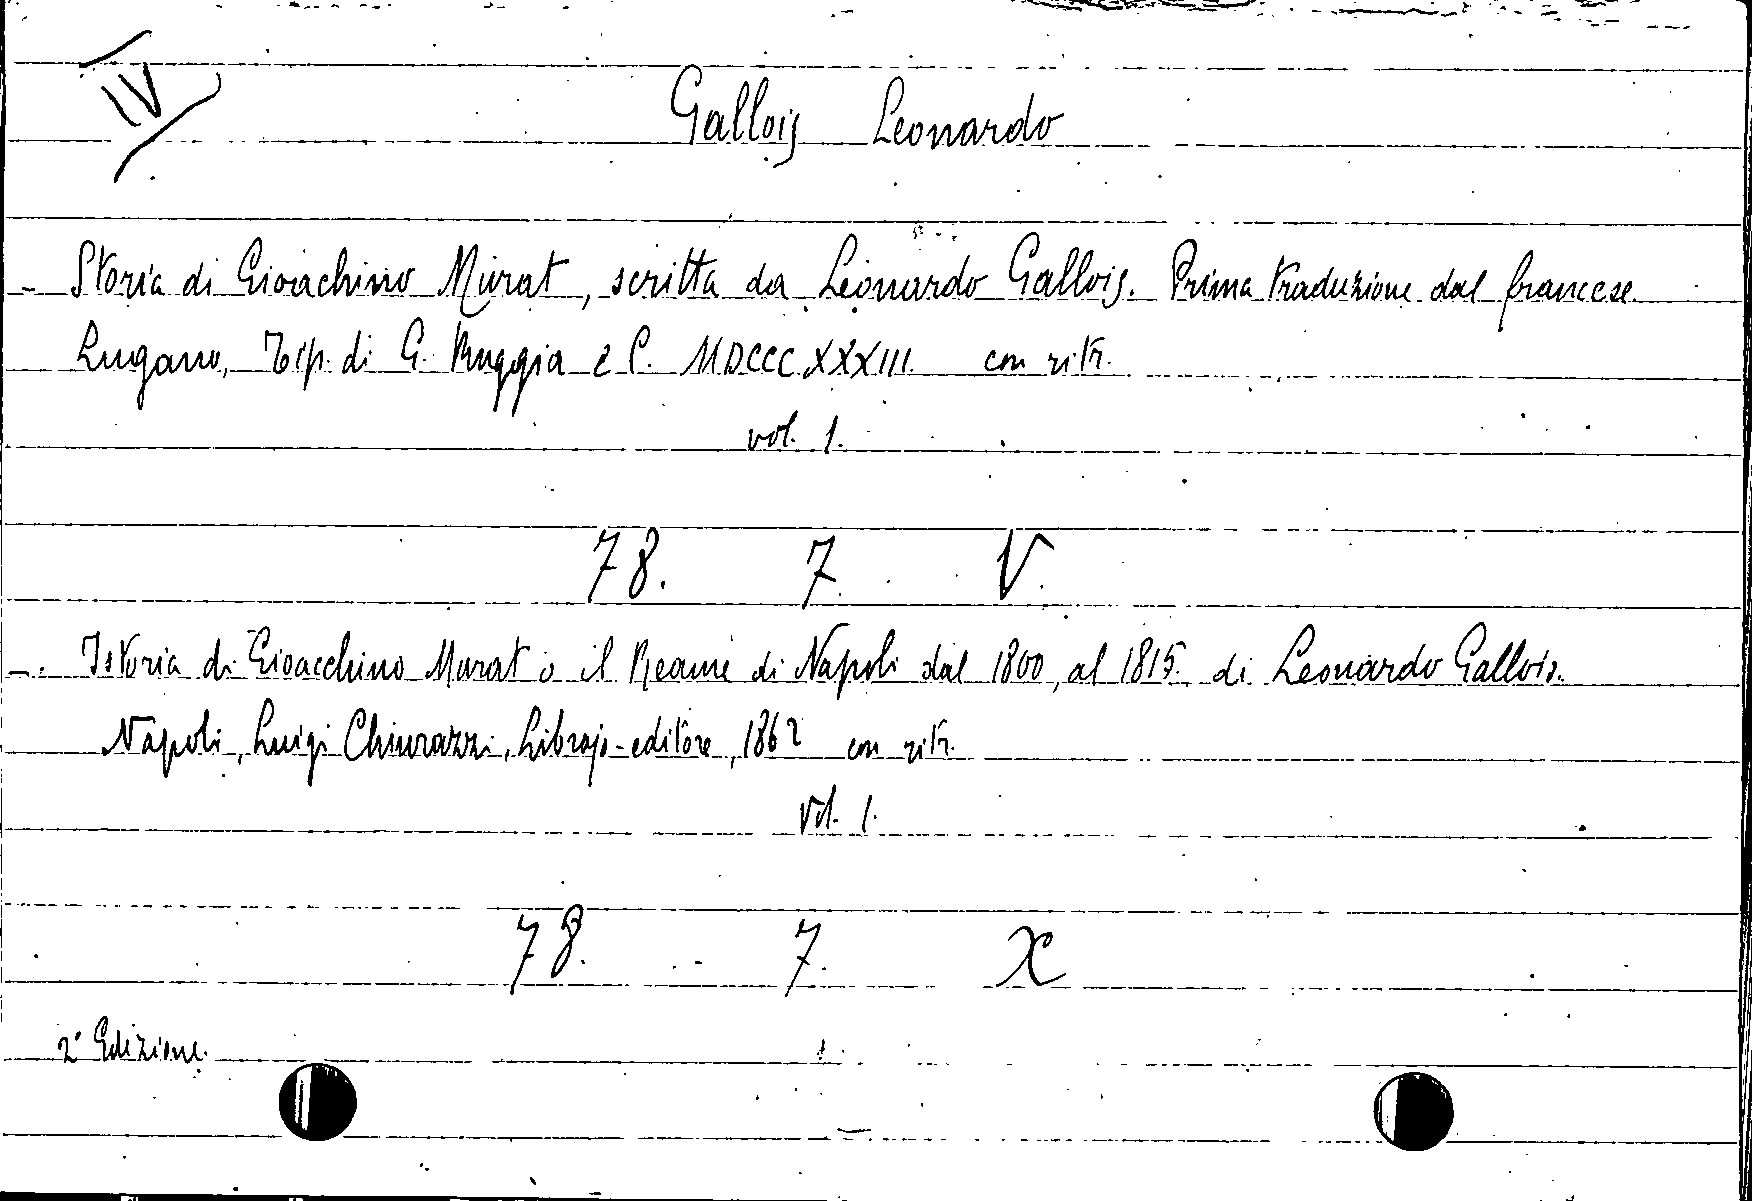 IV
Gallois Leonardo
- Storia di Gioachino Murat, scritta da Leonardo Gallois. Prima traduzione dal francese
Lugano, Tip. di G. Ruggia e C. MDCCCXXXIII con ritr.
vol. 1.
78. 7. V.
- Istoria di Gioacchino Murat o il Reame di Napoli dal 1800, al 1815. di Leonardo Gallois.
Napoli, Luigi Chiurazzi, Librajo-editore, 1862 con ritr.
Vol. 1.
78. 7. X
2ª Edizione.